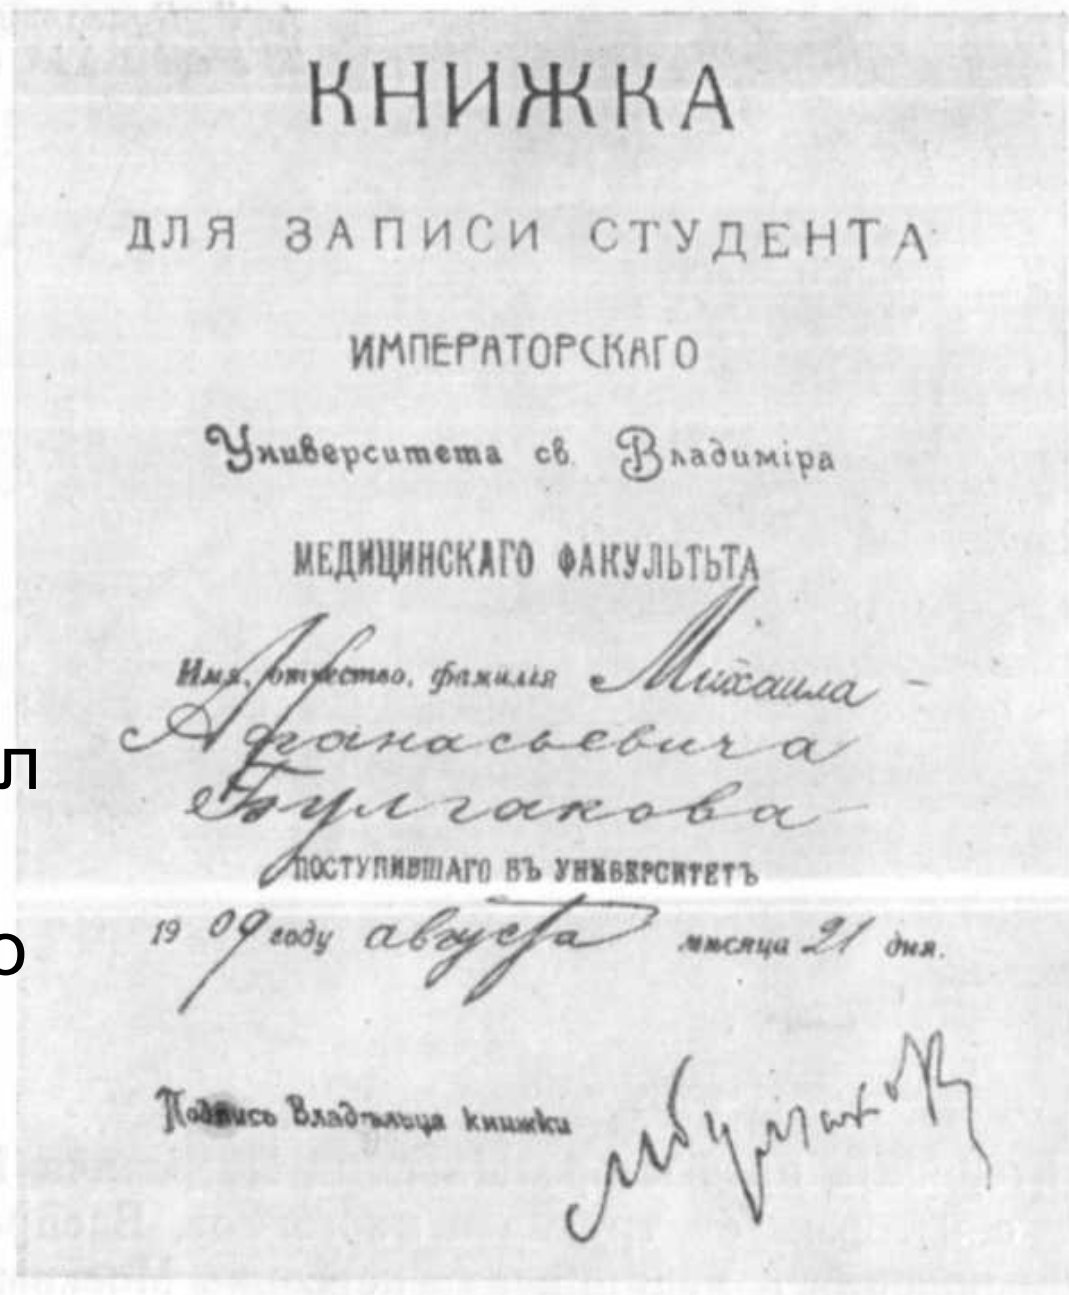 КНИЖКА
ДЛЯ ЗАПИСИ СТУДЕНТА
ИМПЕРАТОРСКАГО
Университета св. Владиміра
МЕДИЦИНСКАГО ФАКУЛЬТЬТА
Имя, отчество, фамилія Михаила
Афанасьевича
л
Булгакова
ПОСТУПИВШАГО ВЪ УНИВЕРСИТЕТЪ
1909 году августа мѣсяца 21 дня.
о
Подпись Владѣльца книжки МБулгаков